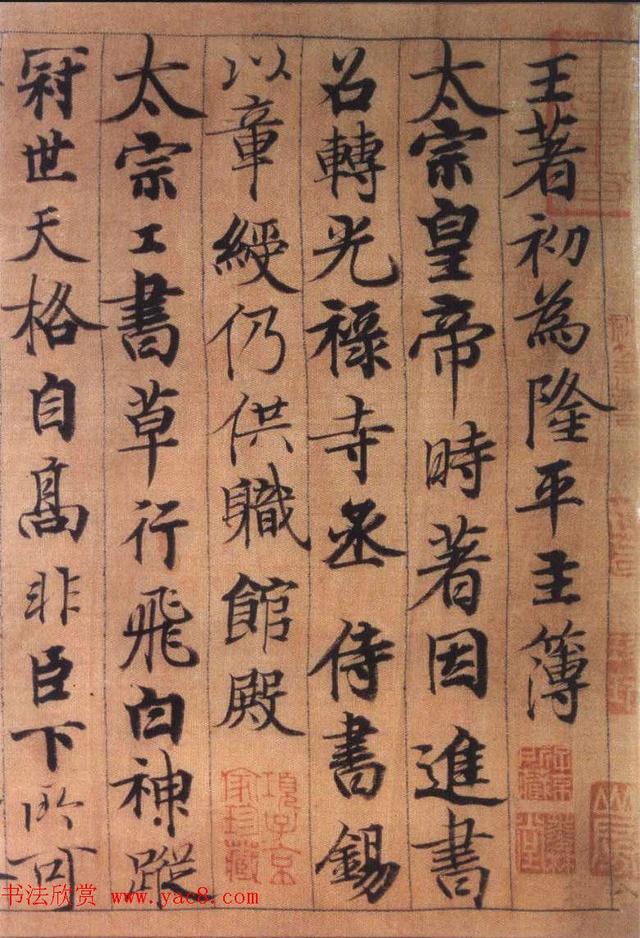 王著初為隆平主簿
太宗皇帝時著因進書
召轉光祿寺丞侍書錫
以章綬仍供職館殿
太宗工書草行飛白神蹤
冠世天格自高非臣下所可
項子京家珍藏
书法欣赏 www.yac8.com